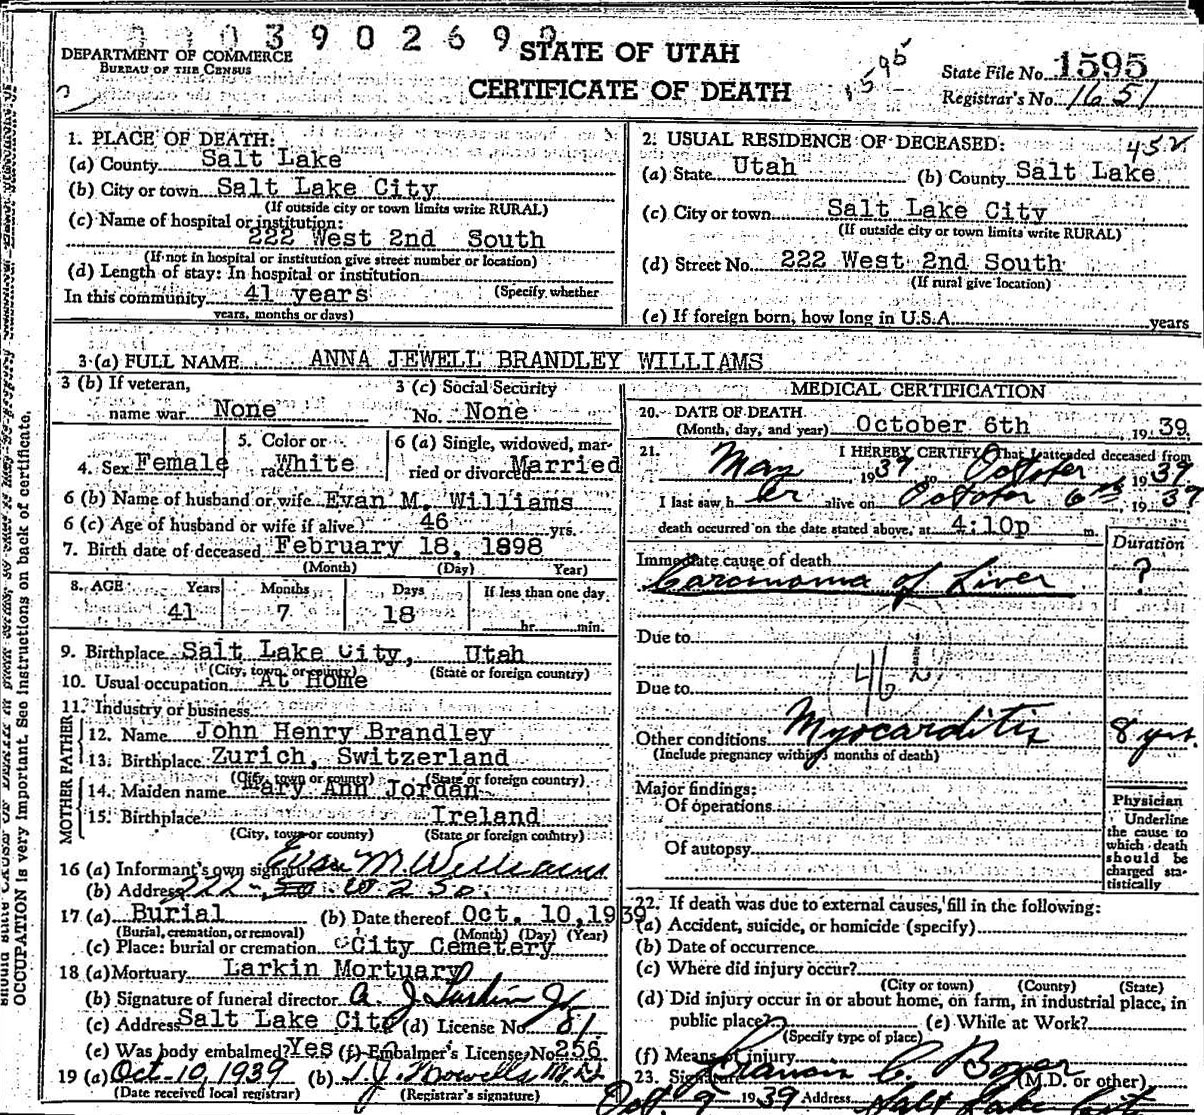 0003902690
DEPARTMENT OF COMMERCE
BUREAU OF THE CENSUS
STATE OF UTAH
CERTIFICATE OF DEATH
1595
State File No. 1595
Registrar's No. 1651
1. PLACE OF DEATH:
(a) County Salt Lake
(b) City or town Salt Lake City
(If outside city or town limits write RURAL)
(c) Name of hospital or institution:
222 West 2nd South
(If not in hospital or institution give street number or location)
(d) Length of stay: In hospital or institution
In this community 41 years (Specify whether
years, months or days)
2. USUAL RESIDENCE OF DECEASED: 452
(a) State Utah (b) County Salt Lake
(c) City or town Salt Lake City
(If outside city or town limits write RURAL)
(d) Street No. 222 West 2nd South
(If rural give location)
(e) If foreign born, how long in U.S.A. years
3 (a) FULL NAME ANNA JEWELL BRANDLEY WILLIAMS
3 (b) If veteran,
name war None
3 (c) Social Security
No. None
4. Sex Female
5. Color or
race White
6 (a) Single, widowed, mar-
ried or divorced Married
6 (b) Name of husband or wife Evan M. Williams
6 (c) Age of husband or wife if alive 46 yrs.
7. Birth date of deceased February 18, 1898
(Month) (Day) Year)
8. AGE Years Months Days If less than one day
41 7 18 hr. min.
9. Birthplace Salt Lake City, Utah
(City, town, or county) (State or foreign country)
10. Usual occupation At Home
11. Industry or business
FATHER
12. Name John Henry Brandley
13. Birthplace Zurich, Switzerland
(City, town or county) (State or foreign country)
MOTHER
14. Maiden name Mary Ann Jordan
15. Birthplace Ireland
(City, town or county) (State or foreign country)
16 (a) Informant's own signature Evan M. Williams
(b) Address 222 - So W 2 So.
17 (a) Burial (b) Date thereof Oct. 10, 1939
(Burial, cremation, or removal) (Month) (Day) (Year)
(c) Place: burial or cremation City Cemetery
18 (a) Mortuary Larkin Mortuary
(b) Signature of funeral director A. J. Larkin Jr
(c) Address Salt Lake City (d) License No. 81
(e) Was body embalmed? Yes (f) Embalmer's License No. 256
19 (a) Oct-10, 1939 (b) T. J. Howells M.D.
(Date received local registrar) (Registrar's signature)
MEDICAL CERTIFICATION
20. DATE OF DEATH
(Month, day, and year) October 6th, 1939
21. I HEREBY CERTIFY That I attended deceased from
May 1939 to October 1939
I last saw her alive on October 6th, 1939
death occurred on the date stated above, at 4:10p m.
Duration
Immediate cause of death
Carcinoma of Liver ?
Due to
46
Due to
Other conditions Myocarditis 8 yrs.
(Include pregnancy within 3 months of death)
Major findings:
Of operations
Of autopsy
Physician
Underline
the cause to
which death
should be
charged sta-
tistically
22. If death was due to external causes, fill in the following:
(a) Accident, suicide, or homicide (specify)
(b) Date of occurrence
(c) Where did injury occur?
(City or town) (County) (State)
(d) Did injury occur in or about home, on farm, in industrial place, in
public place? (e) While at Work?
(Specify type of place)
(f) Means of injury
23. Signature Francis C. Boyer (M.D. or other)
Oct. 9 1939 Address Salt Lake City
OCCUPATION is very important. See instructions on back of certificate.